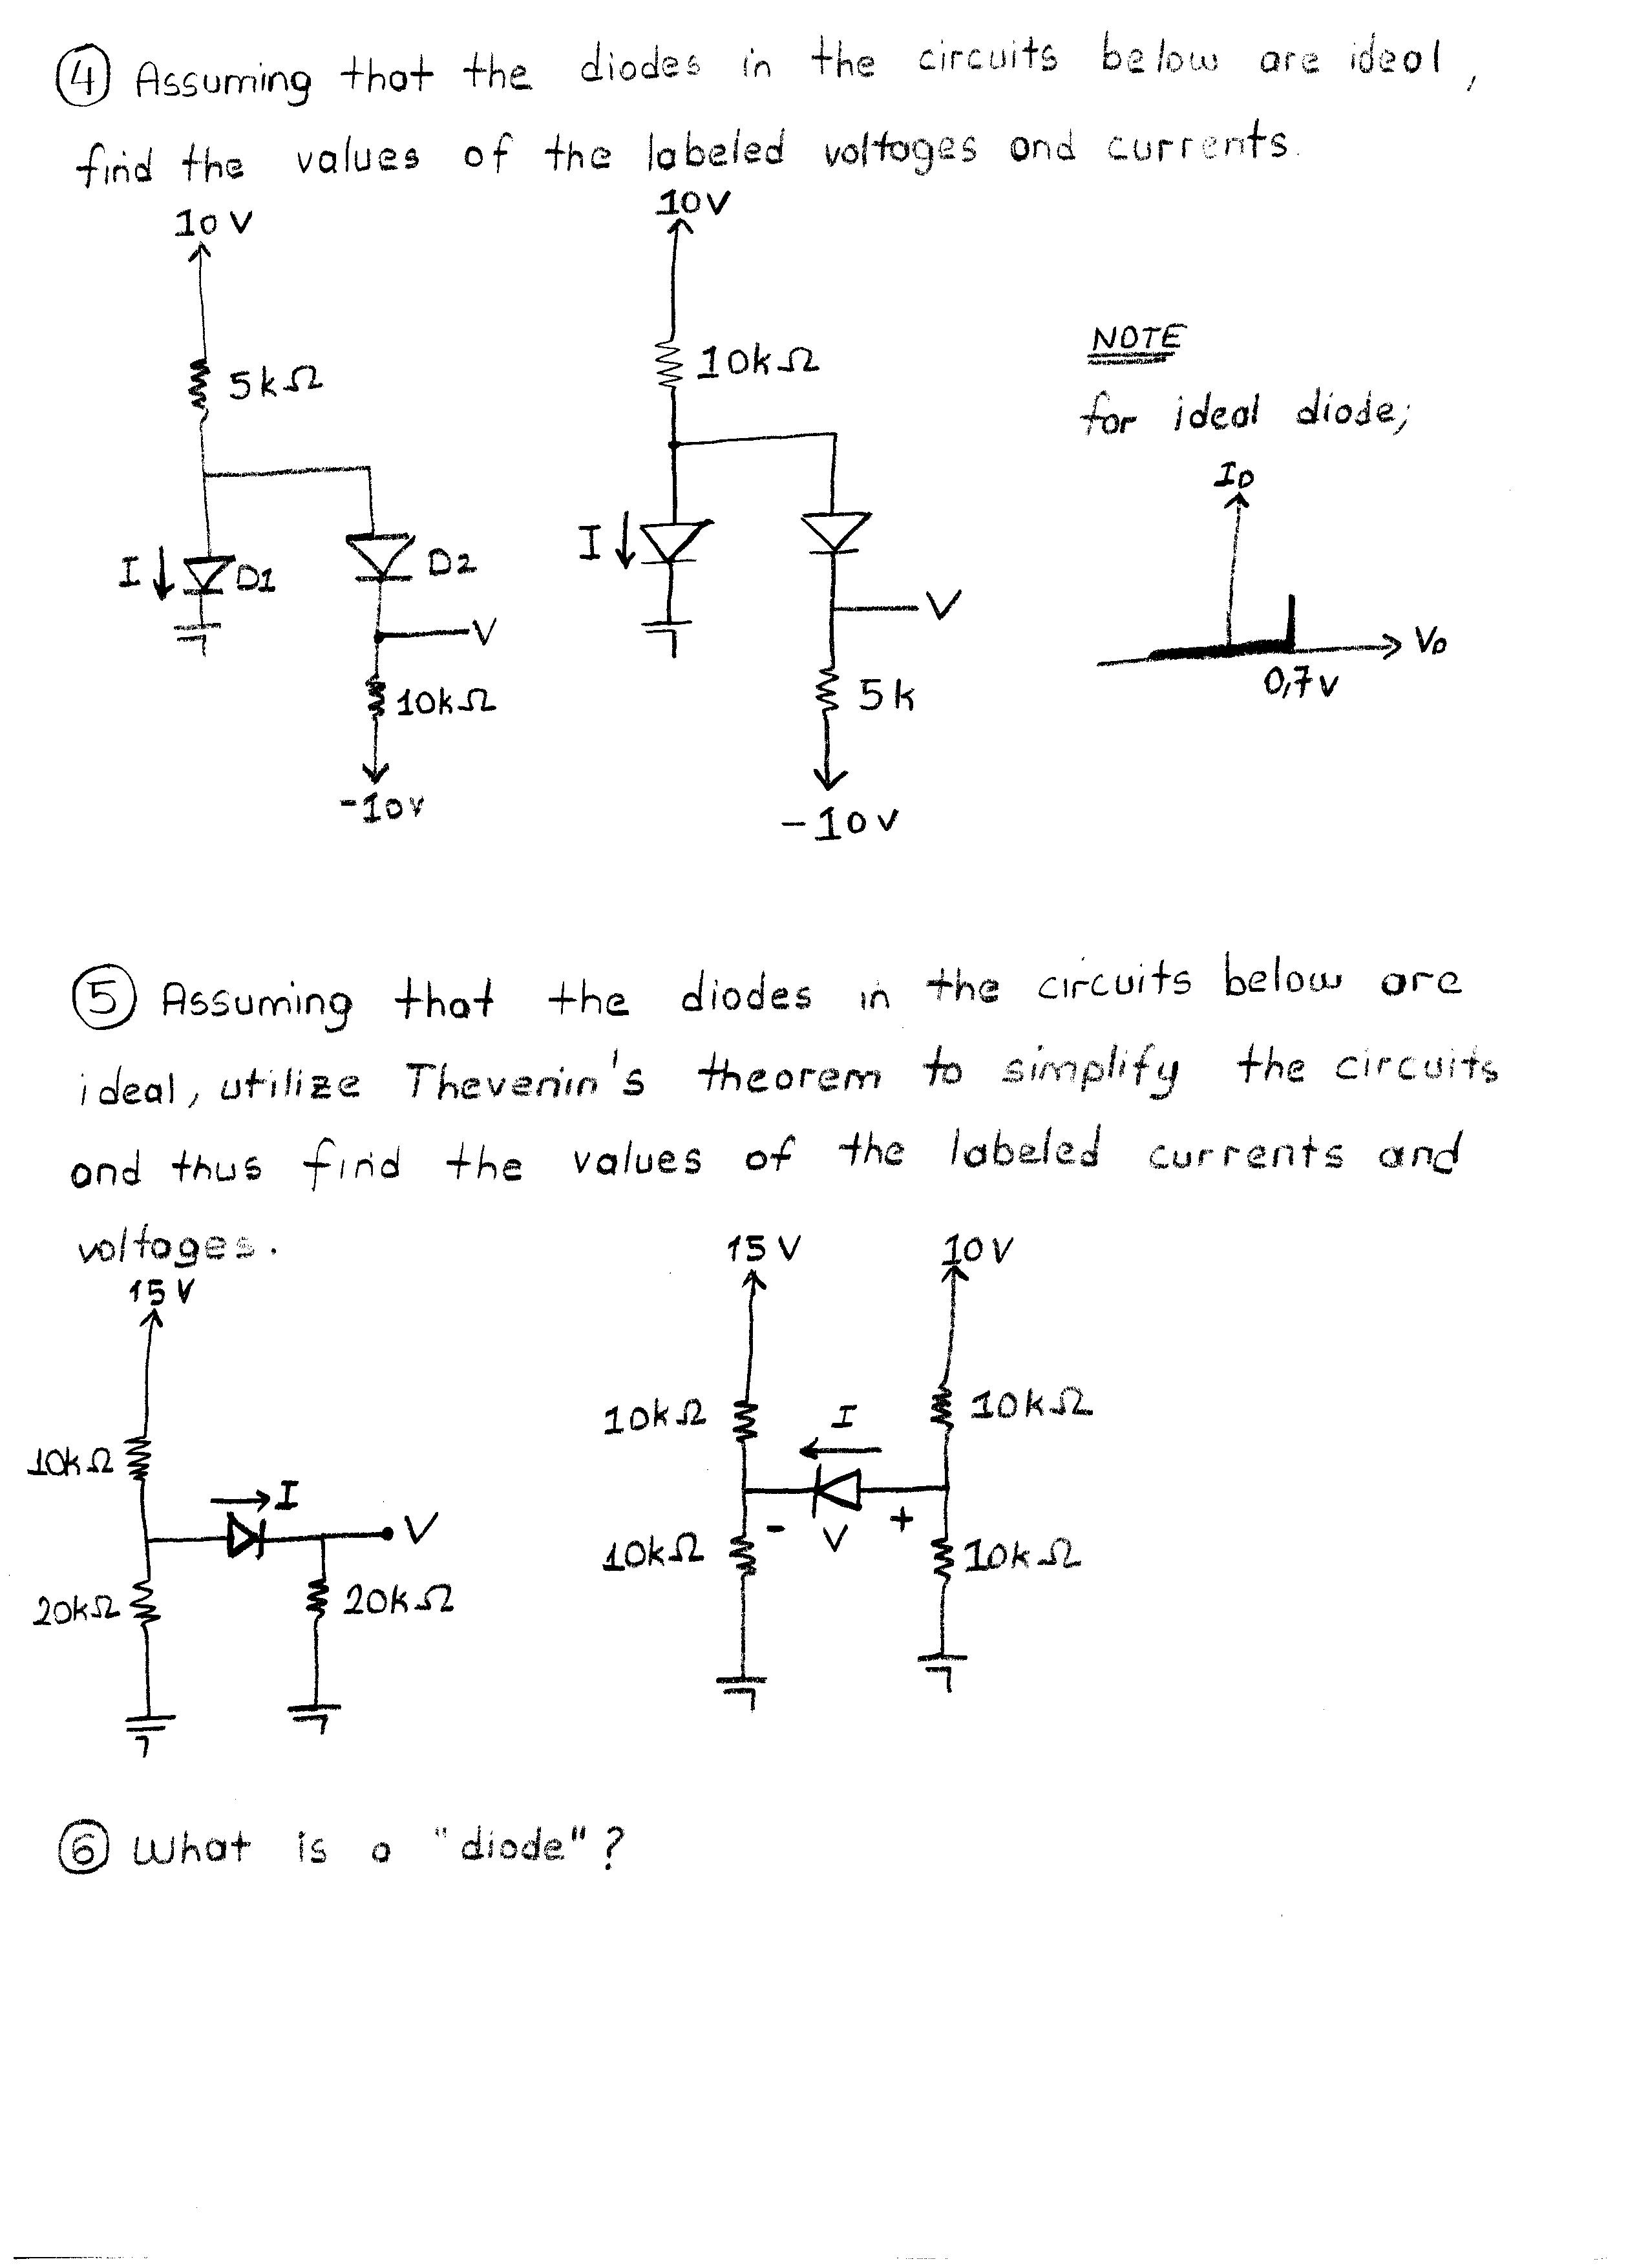 ④ Assuming that the diodes in the circuits below are ideal,
find the values of the labeled voltages and currents.
10V
5kΩ
I
D1
D2
V
10kΩ
-10V
10V
10kΩ
I
V
5k
-10V
NOTE
for ideal diode;
ID
VD
0,7V
⑤ Assuming that the diodes in the circuits below are
ideal, utilize Thevenin's theorem to simplify the circuits
and thus find the values of the labeled currents and
voltages.
15V
10kΩ
I
V
20kΩ
20kΩ
15V
10V
10kΩ
I
10kΩ
- V +
10kΩ
10kΩ
⑥ What is a "diode"?